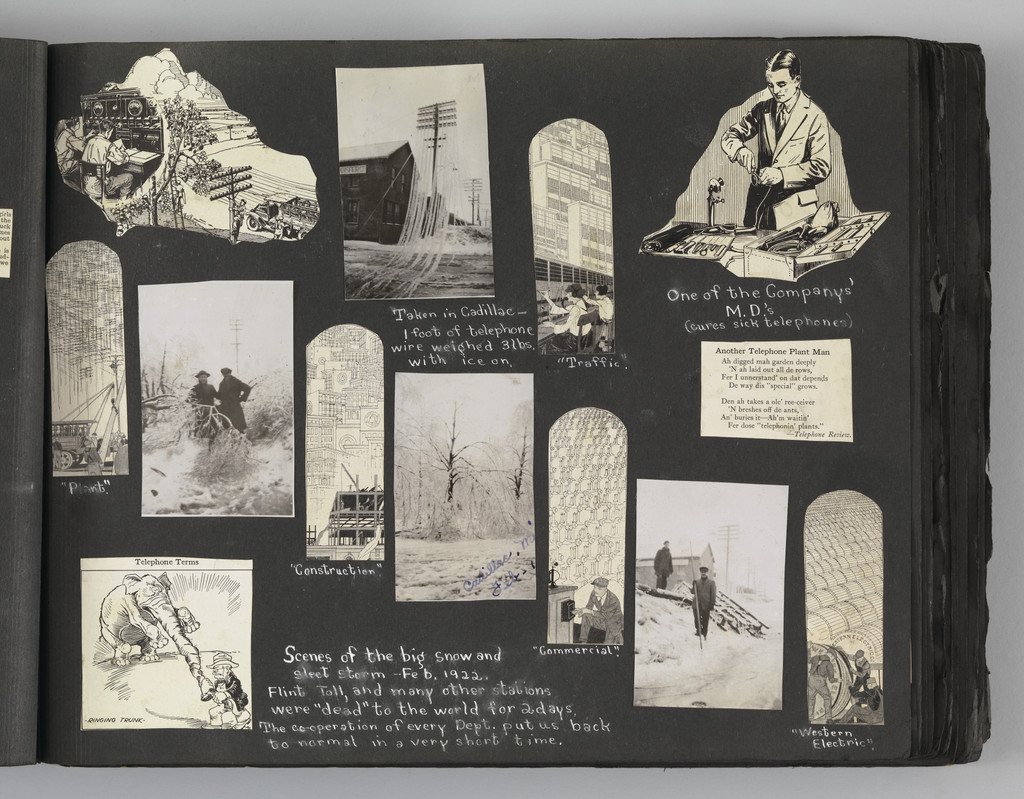 Taken in Cadillac—
1 foot of telephone
wire weighed 3 lbs,
with ice on.
"Traffic"
One of the Companys'
M.D.'s
(cures sick telephones)
Another Telephone Plant Man
Ah digged mah garden deeply
'N ah laid out all de rows,
Fer I unnerstand' on dat depends
De way dis "special" grows.
Den ah takes a ole' ree-ceiver
'N breshes off de ants,
An' buries it—Ah'm waitin'
Fer dose "telephonin' plants."
—Telephone Review.
"Plant"
"Construction"
Cadillac, M
"Commercial".
Telephone Terms
-RINGING TRUNK-
Scenes of the big snow and
sleet storm—Feb, 1922.
Flint Toll, and many other stations
were "dead" to the world for 2 days.
The co-operation of every Dept. put us back
to normal in a very short time.
"Western
Electric".